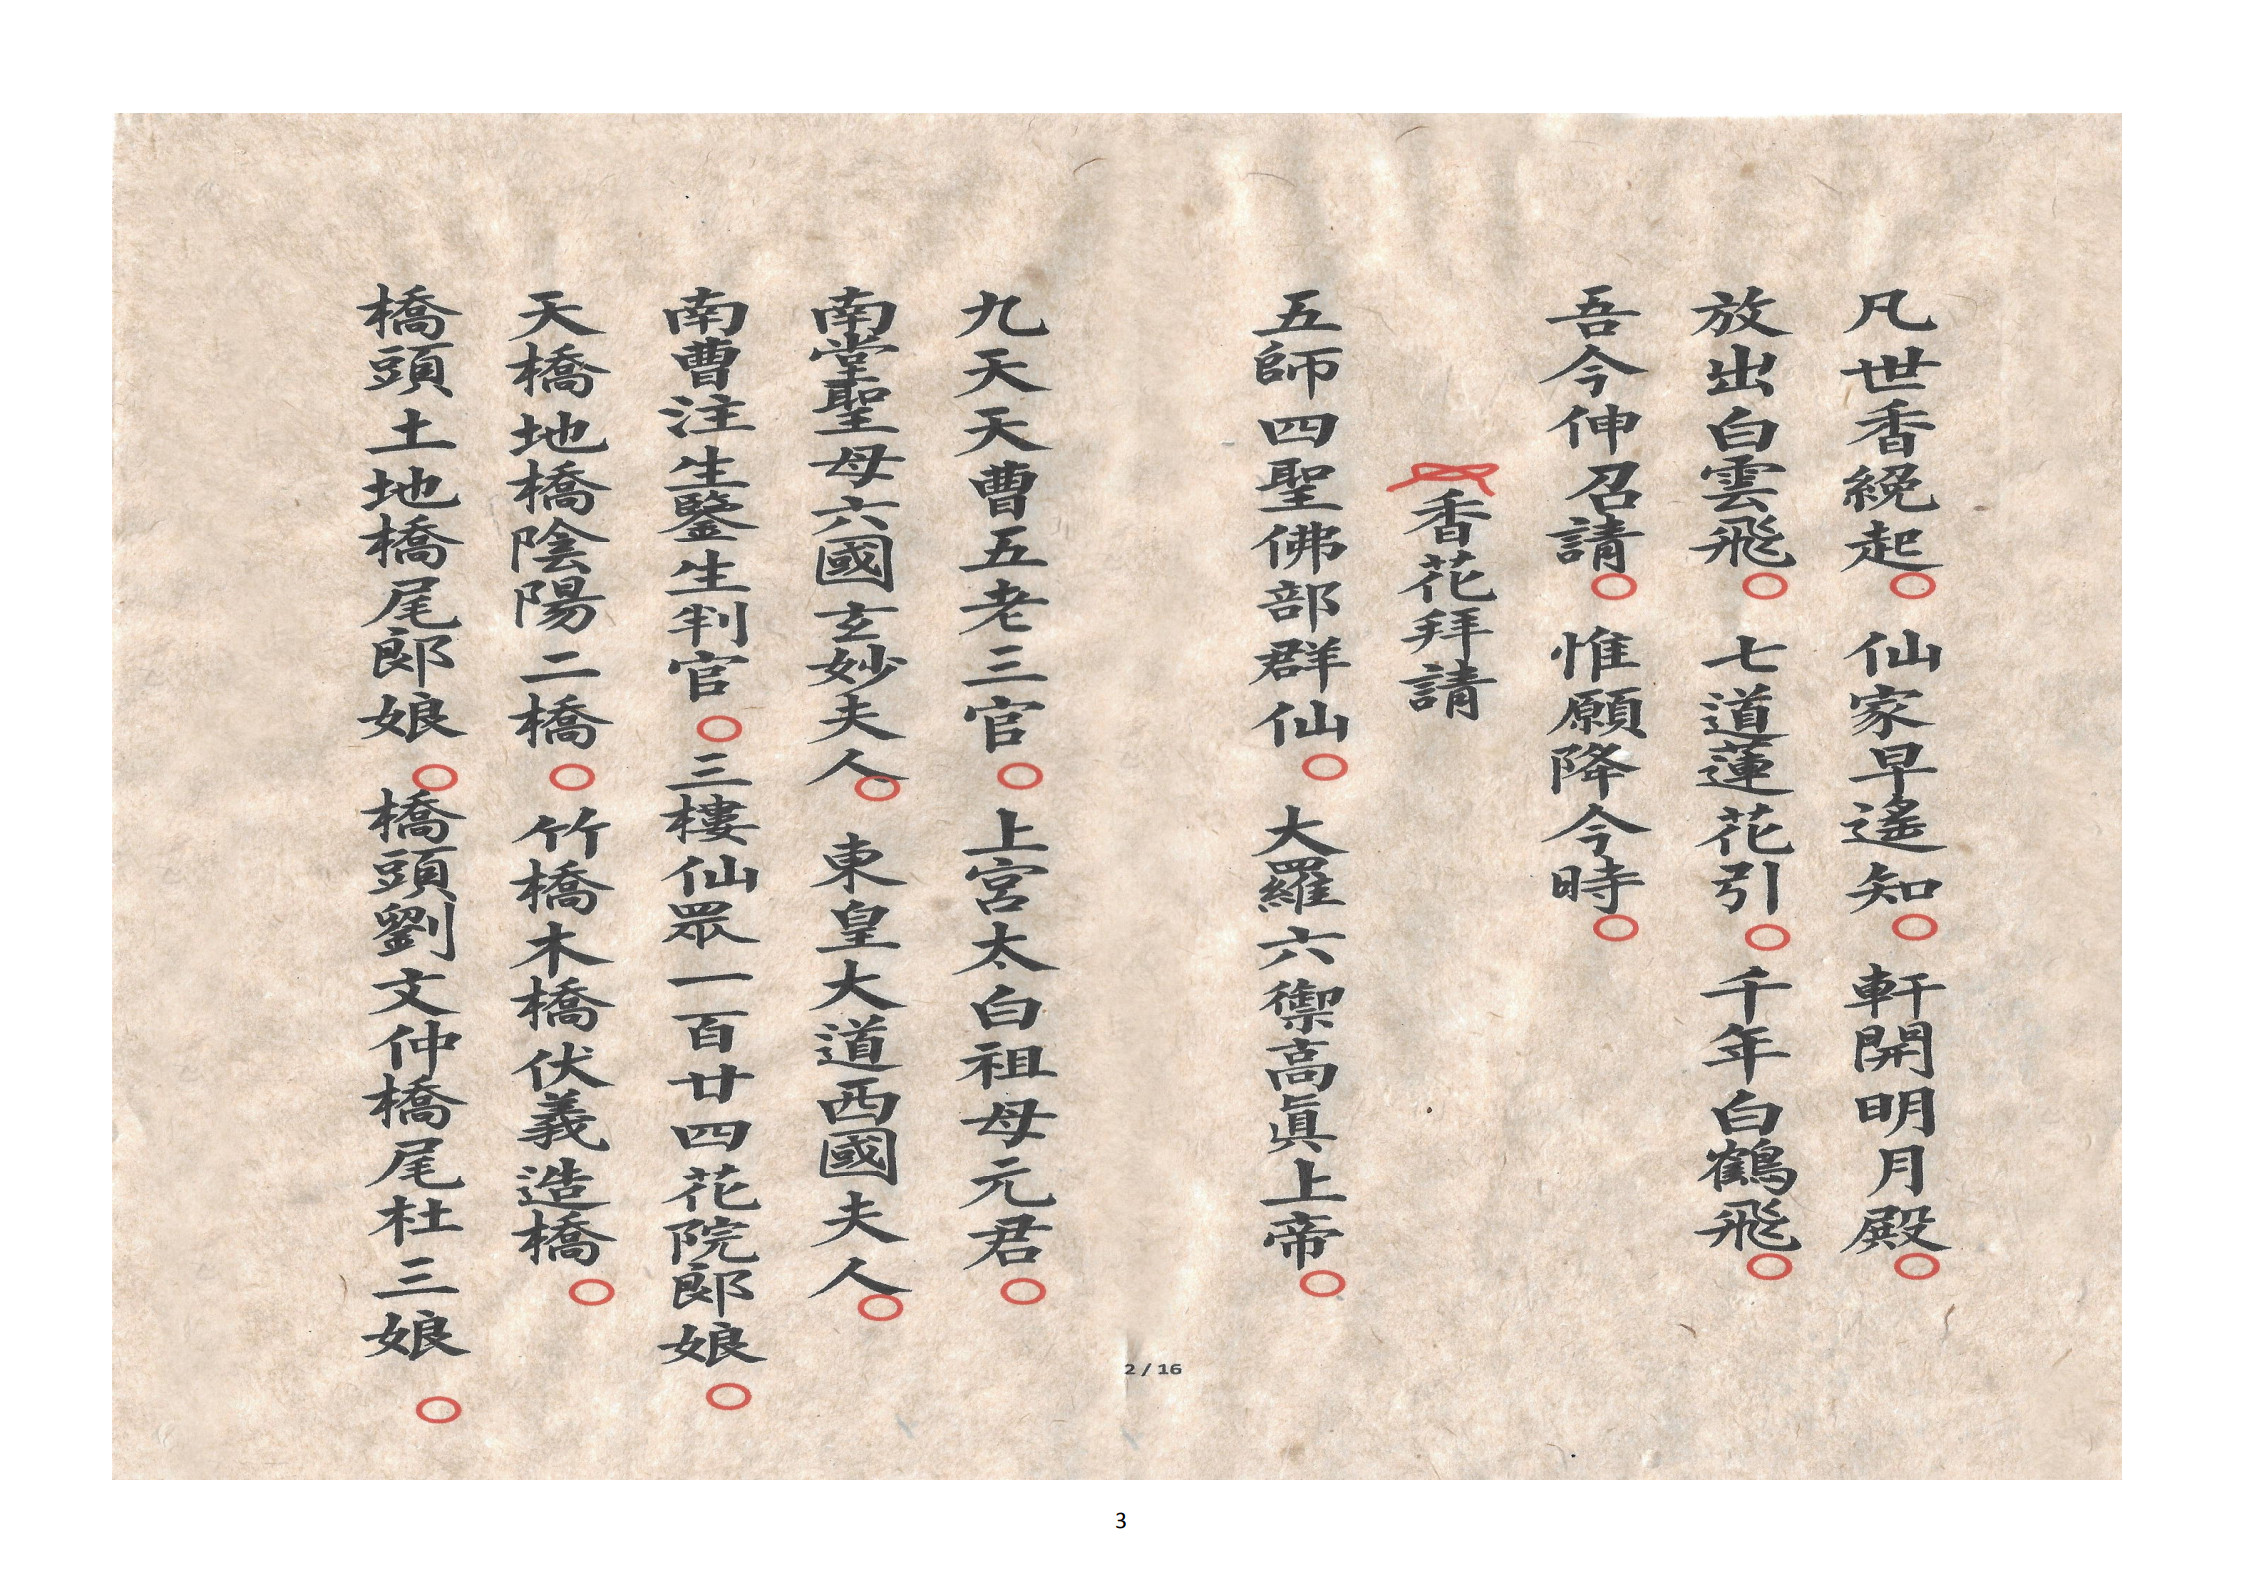 凡世香纔起○仙家早遙知○軒開明月殿○
放出白雲飛○七道蓮花引○千年白鶴飛○
吾今伸召請○惟願降今時○
香花拜請
五師四聖佛部群仙○大羅六禦高眞上帝○
九天天曹五老三官○上宮太白祖母元君○
南堂聖母六國玄妙夫人○東皇大道西國夫人○
南曹注生鑒生判官○三樓仙眾一百廿四花院郎娘○
天橋地橋陰陽二橋○竹橋木橋伏義造橋○
橋頭土地橋尾郎娘○橋頭劉文仲橋尾杜三娘○
2 / 16
3